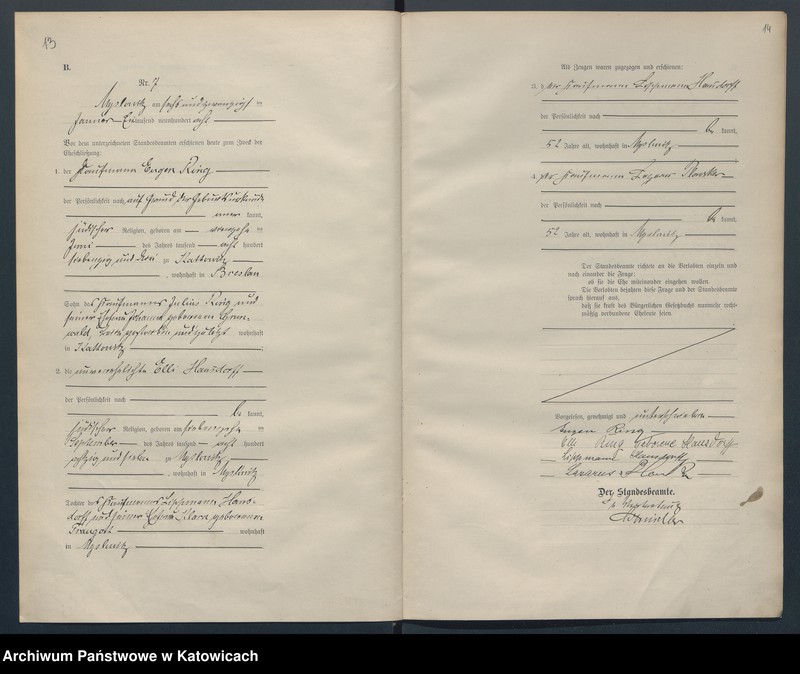 13
B.
Nr. 7
Myslowitz am sechsundzwanzigs ten
Januar Eintausend neunhundert acht
Vor dem unterzeichneten Standesbeamten erschienen heute zum Zweck der
Eheschließung:
1. der Kaufmann Eugen Ring
der Persönlichkeit nach auf Grund der Geburtsurkunde
kannt,
jüdischer Religion, geboren am ten
Juni des Jahres tausend acht hundert
siebenzig und drei zu Kattowitz
, wohnhaft in Breslau
Sohn des Kaufmannes Julius Ring und
seiner Ehefrau Johanna geborenen Grün-
wald, beide gestorben und zuletzt wohnhaft
in Kattowitz
2. die unverehelichte Elli Hansdorff
der Persönlichkeit nach
be kannt,
jüdischer Religion, geboren am ten
September des Jahres tausend acht hundert
achtzig und sieben zu Myslowitz
, wohnhaft in Myslowitz
Tochter des Kaufmannes Lippmann Hans-
dorff und seiner Ehefrau Klara geborenen
Traugott wohnhaft
in Myslowitz
14
Als Zeugen waren zugezogen und erschienen:
3. der Kaufmann Lippmann Hansdorff
der Persönlichkeit nach
be kannt,
52 Jahre alt, wohnhaft in Myslowitz
4. der Kaufmann Lazarus
der Persönlichkeit nach
be kannt,
52 Jahre alt, wohnhaft in Myslowitz
Der Standesbeamte richtete an die Verlobten einzeln und
nach einander die Frage:
ob sie die Ehe miteinander eingehen wollen.
Die Verlobten bejahten diese Frage und der Standesbeamte
sprach hierauf aus,
daß sie kraft des Bürgerlichen Gesetzbuchs nunmehr recht-
mäßig verbundene Eheleute seien.
Vorgelesen, genehmigt und unterschrieben
Eugen Ring
Elli Ring geborene Hansdorff
Lippmann Hansdorff
Lazarus
Der Standesbeamte.
In Vertretung
Archiwum Państwowe w Katowicach